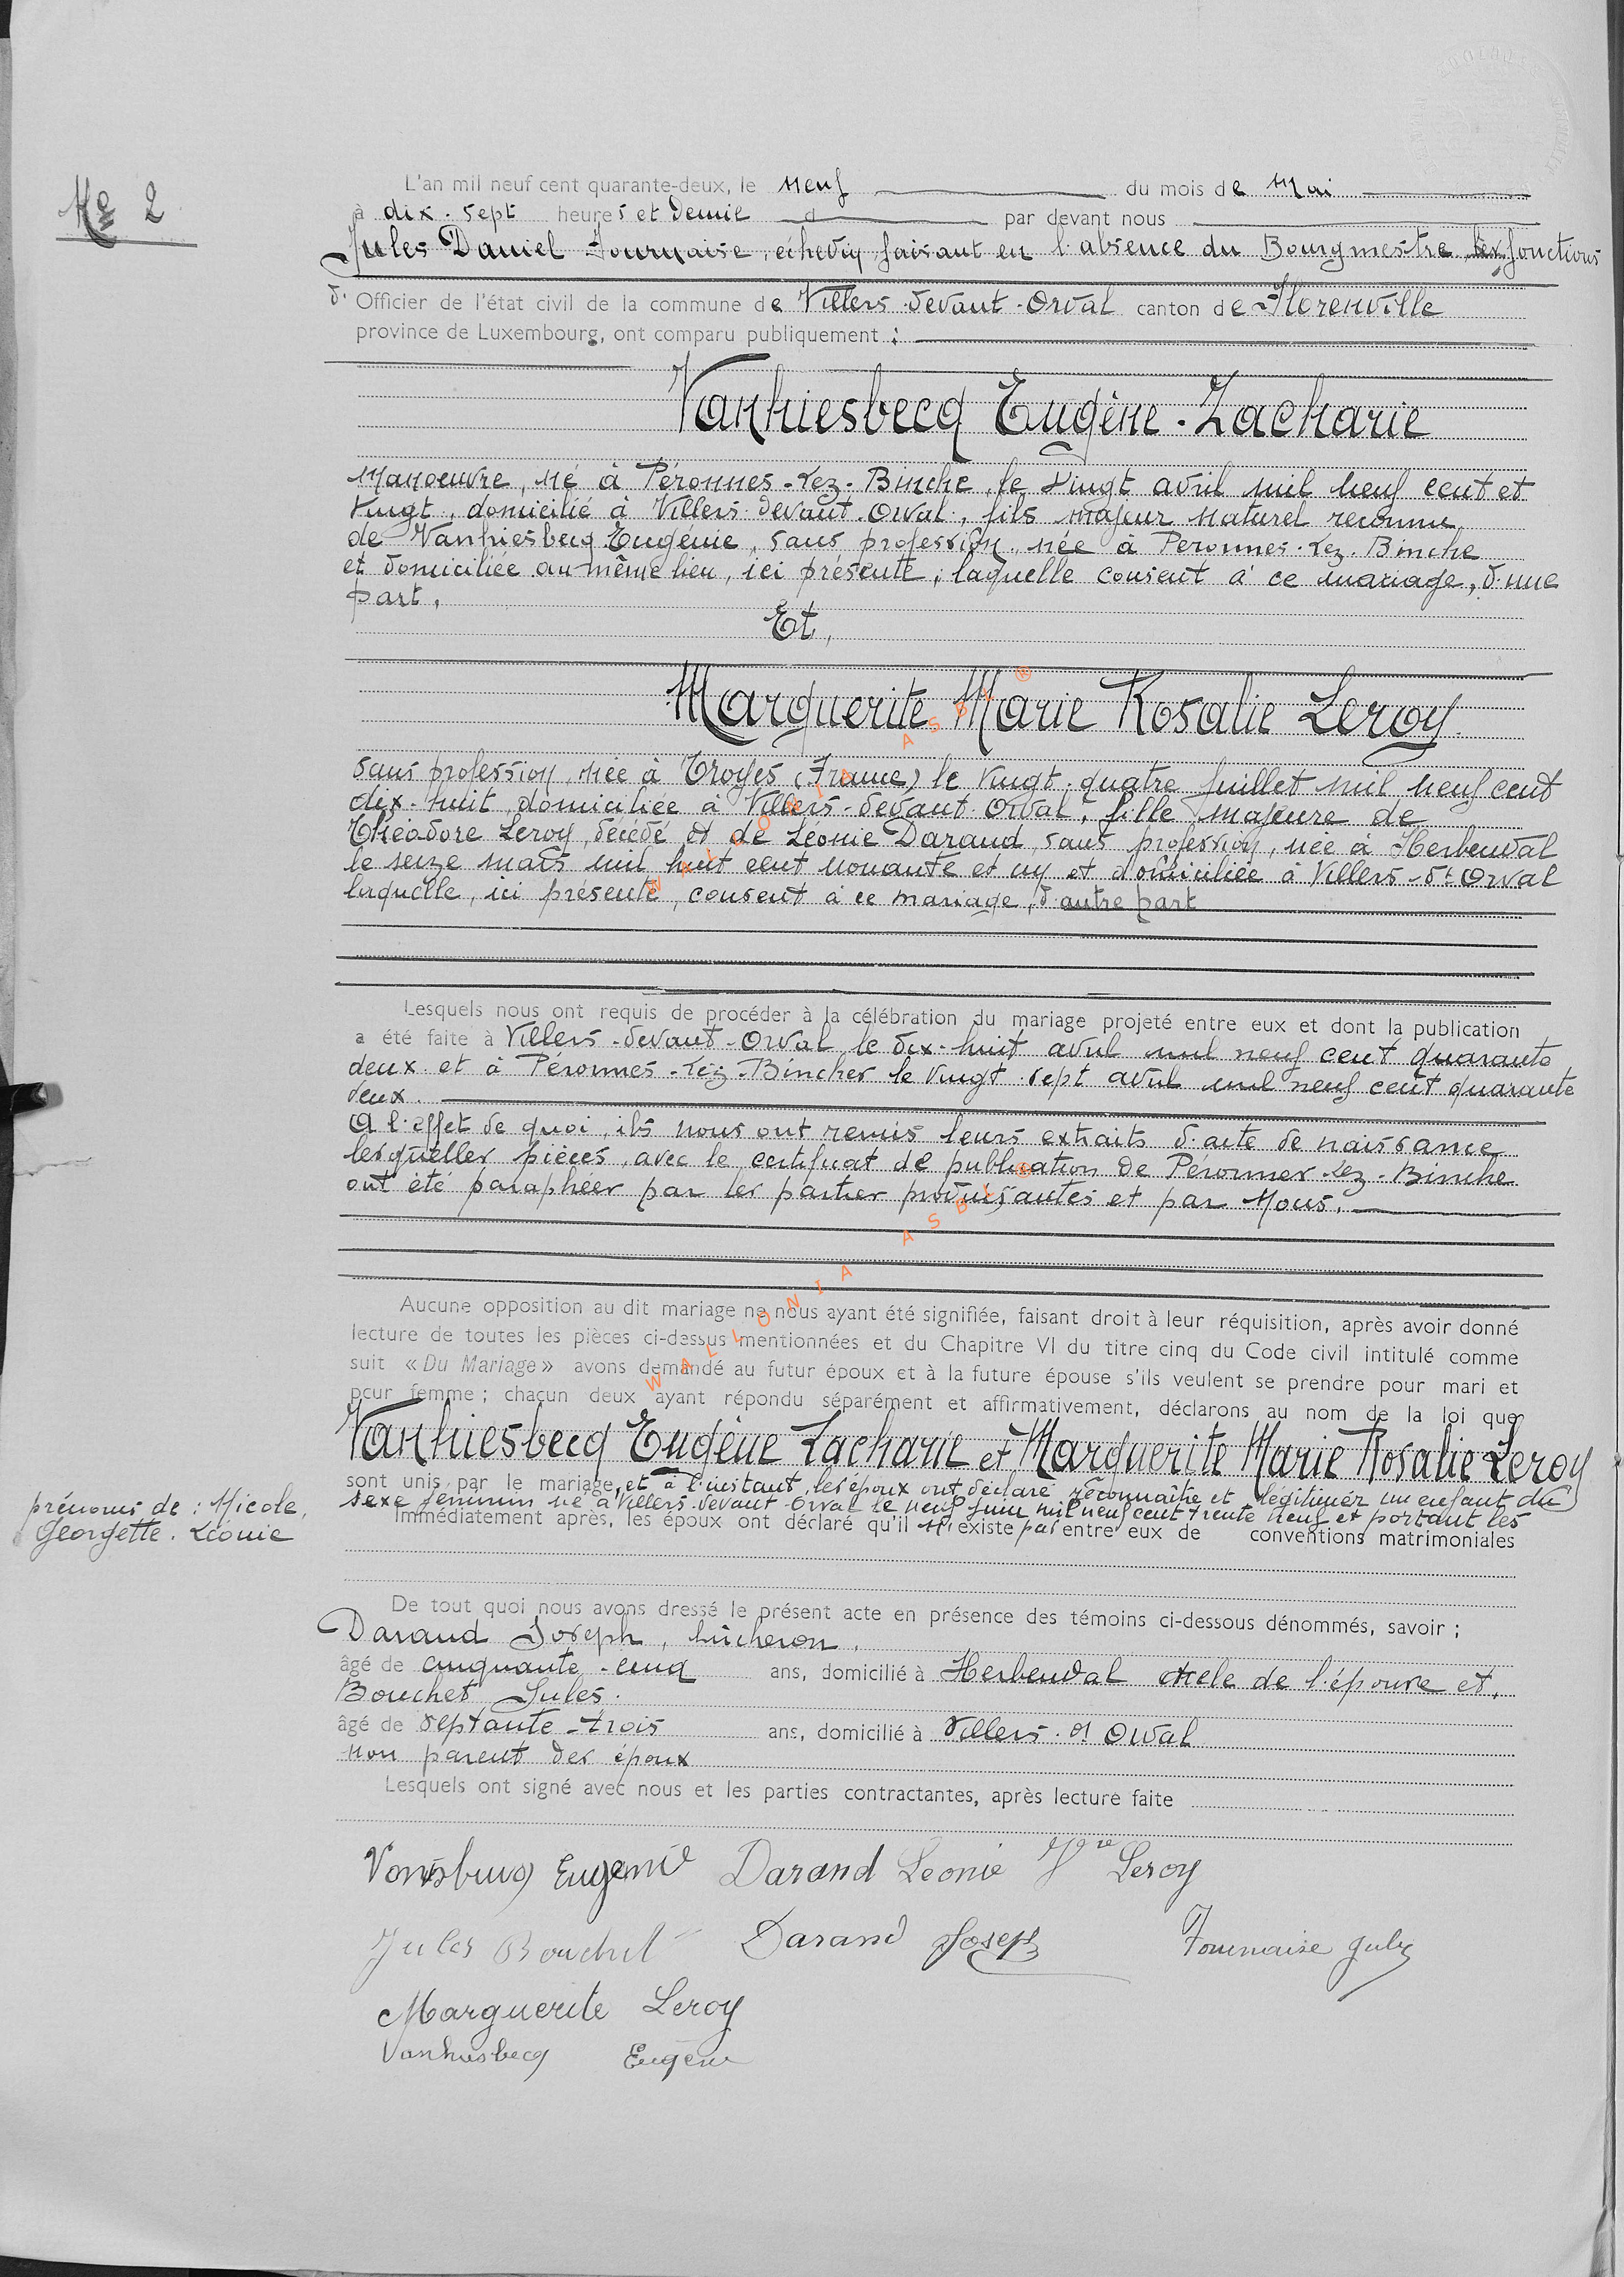 No 2
L'an mil neuf cent quarante-deux, le neuf du mois de Mai
à dix-sept heures et demie par devant nous
Jules Daniel Fournaise, échevin faisant en l'absence du Bourgmestre les fonctions
d'Officier de l'état civil de la commune de Villers-devant-Orval canton de Florenville
province de Luxembourg, ont comparu publiquement :
Vanhiesbecq Eugène-Zacharie
Manoeuvre, né à Péronnes-Lez-Binche, le vingt avril mil neuf cent et
vingt, domicilié à Villers-devant-Orval, fils majeur naturel reconnu
de Vanhiesbecq Eugénie, sans profession, née à Peronnes-Lez-Binche
et domiciliée au même lieu, ici présente, laquelle consent à ce mariage, d'une
part,
Et,
Marguerite Marie Rosalie Leroy
sans profession, née à Troyes (France) le vingt-quatre juillet mil neuf cent
dix-huit, domiciliée à Villers-devant-Orval, fille majeure de
Théodore Leroy, décédé et de Léonie Darand, sans profession, née à Herbeuval
le seize mars mil huit cent nonante et un et domiciliée à Villers-dt-Orval
laquelle, ici présente, consent à ce mariage, d'autre part
Lesquels nous ont requis de procéder à la célébration du mariage projeté entre eux et dont la publication
a été faite à Villers-devant-Orval le dix-huit avril mil neuf cent quarante
deux et à Péronnes-Lez-Binches le vingt-sept avril mil neuf cent quarante
deux.
A l'effet de quoi, ils nous ont remis leurs extraits d'acte de naissance
lesquelles pièces, avec le certificat de publication de Péronnes-Lez-Binche
ont été paraphées par les parties produisantes et par Nous.
Aucune opposition au dit mariage ne nous ayant été signifiée, faisant droit à leur réquisition, après avoir donné
lecture de toutes les pièces ci-dessus mentionnées et du Chapitre VI du titre cinq du Code civil intitulé comme
suit « Du Mariage » avons demandé au futur époux et à la future épouse s'ils veulent se prendre pour mari et
pour femme ; chacun deux ayant répondu séparément et affirmativement, déclarons au nom de la loi que
Vanhiesbecq Eugène Zacharie et Marguerite Marie Rosalie Leroy
sont unis par le mariage, et à l'instant, les époux ont déclaré reconnaître et légitimer un enfant du
sexe féminin né à Villers-devant-Orval le neuf juin mil neuf cent trente neuf et portant les
prénoms de : Nicole,
Georgette. Léonie
Immédiatement après, les époux ont déclaré qu'il n'existe pas entre eux de conventions matrimoniales
De tout quoi nous avons dressé le présent acte en présence des témoins ci-dessous dénommés, savoir ;
Darand Joseph, bûcheron,
âgé de cinquante-cinq ans, domicilié à Herbeuval oncle de l'épouse et,
Bouchet Jules.
âgé de septante-trois ans, domicilié à Villers-dt Orval
non parent des époux
Lesquels ont signé avec nous et les parties contractantes, après lecture faite
Eugenie Darand Leonie Leroy
Jules Bouchet Darand Joseph Fournaise Jules
Marguerite Leroy
Vanhiesbecq Eugène
WALLONIA ASBL ®
WALLONIA ASBL ®